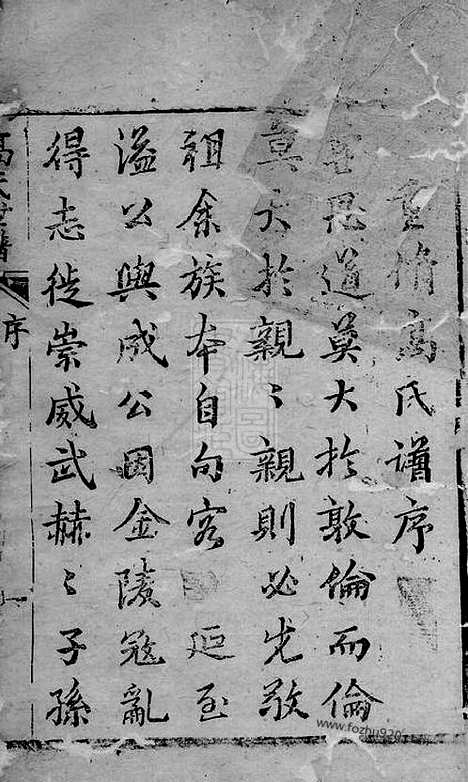 重脩高氏譜序
思道莫大於敦倫而倫
莫大於親〻親則必先敬
祖余族本自句容 延至
溢公與成公因金陵寇亂
得志徙崇威武赫〻子孫
高氏世譜
序
www.fozhu920.com